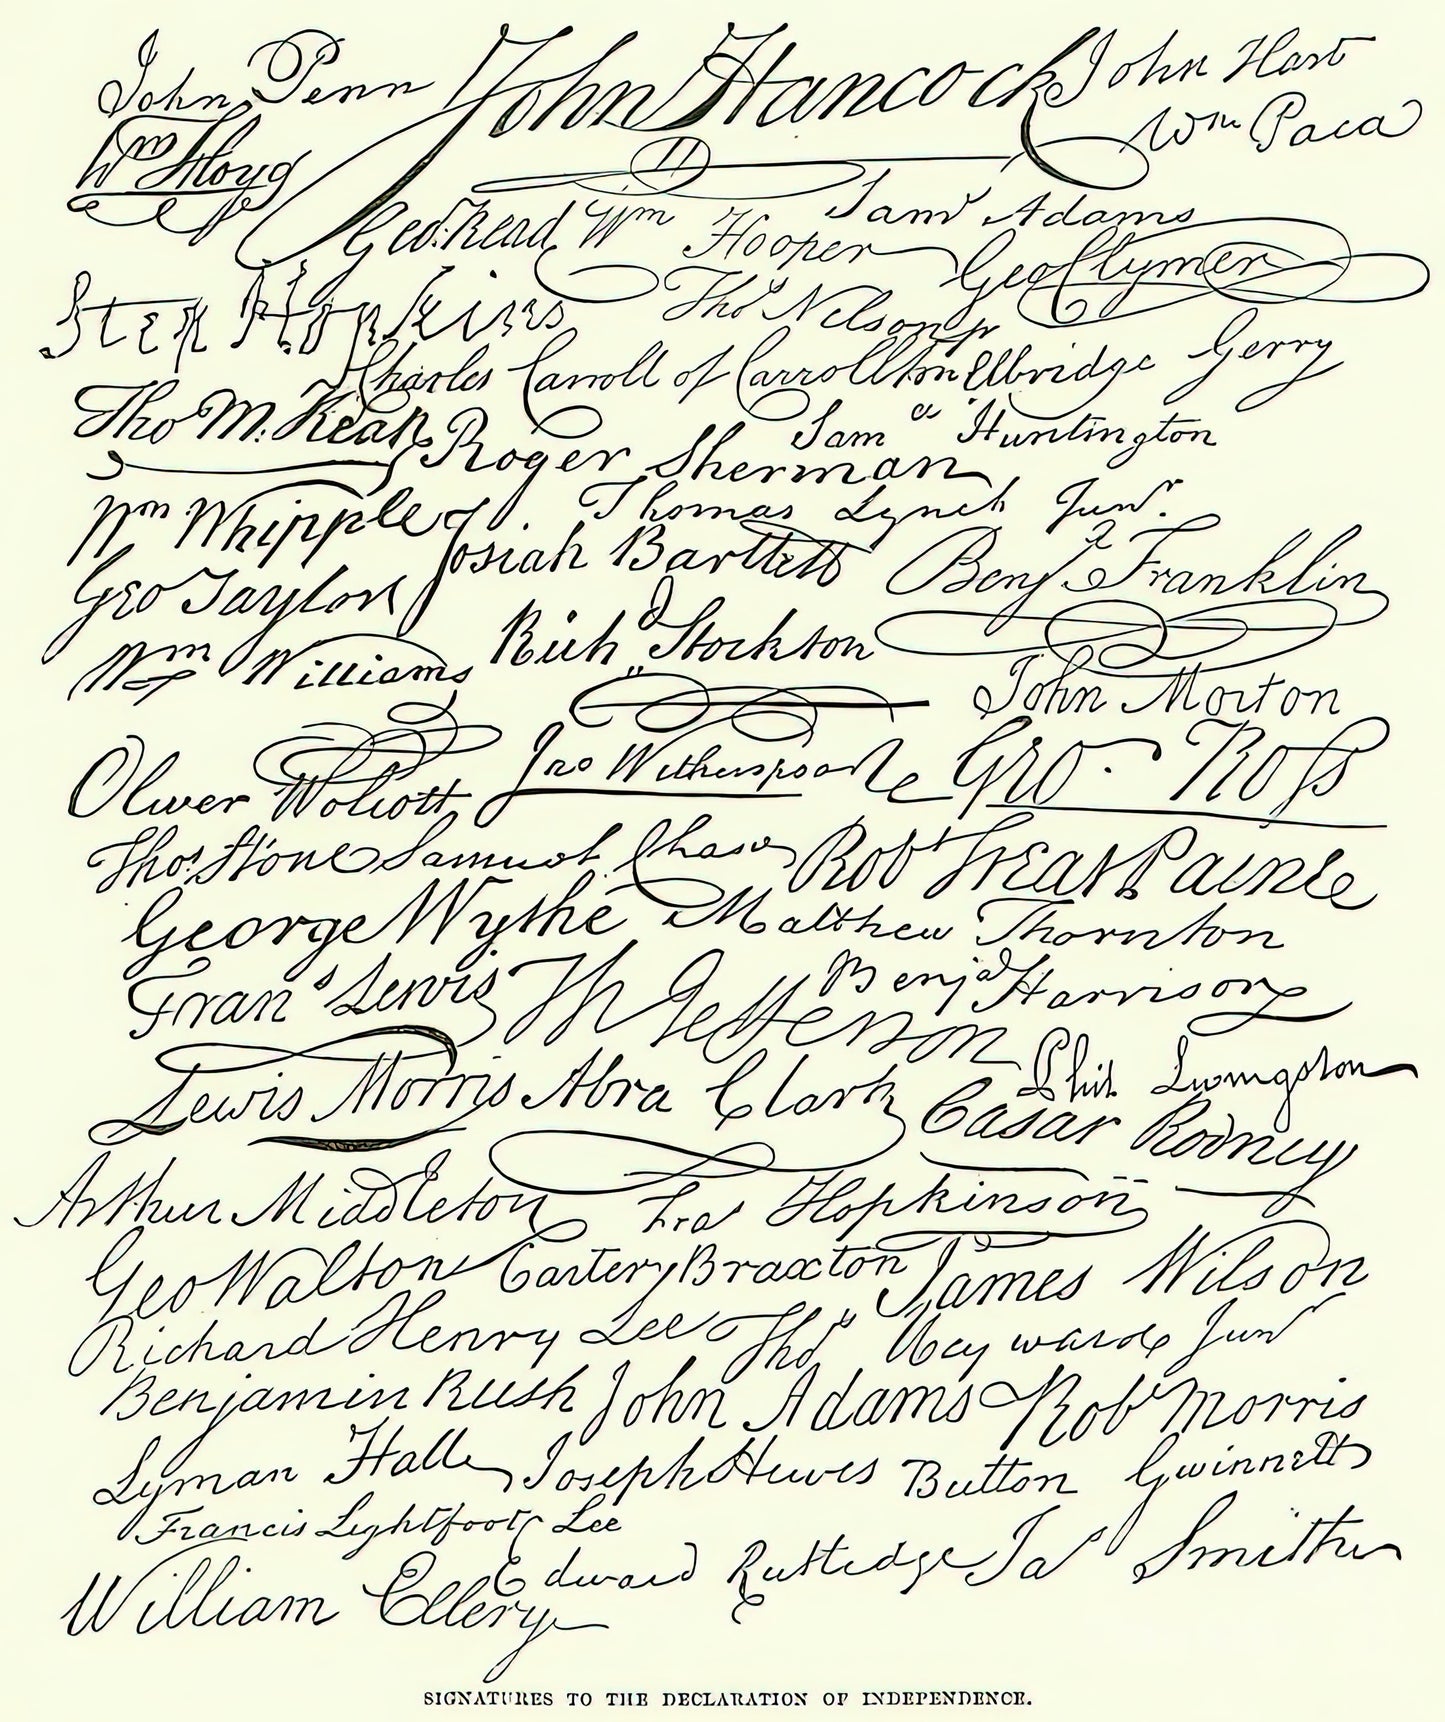 John Penn John Hancock John Hart
Wm Paca
Wm Floyd
Saml Adams
Geo. Read Wm Hooper
Geo Clymer
Step Hopkins
Thos Nelson jr
Charles Carroll of Carrollton Elbridge Gerry
Tho M. Kean Saml Huntington
Roger Sherman
Wm Whipple Thomas Lynch Junr.
Josiah Bartlett Benj. Franklin
Geo Taylor
Richd Stockton
Wm Williams John Morton
Oliver Wolcott Jno Witherspoon Geo. Ross
Thos. Stone Samuel Chase Robt Treat Paine
George Wythe Matthew Thornton
Frans Lewis Th Jefferson Benja Harrison
Lewis Morris Abra Clark Phil. Livingston
Casar Rodney
Arthur Middleton Fras Hopkinson
Geo Walton Carter Braxton James Wilson
Richard Henry Lee Thos Heyward Junr
Benjamin Rush John Adams Robt Morris
Lyman Hall Joseph Hewes Button Gwinnett
Francis Lightfoot Lee
William Ellery Edward Rutledge Jas Smith
SIGNATURES TO THE DECLARATION OF INDEPENDENCE.